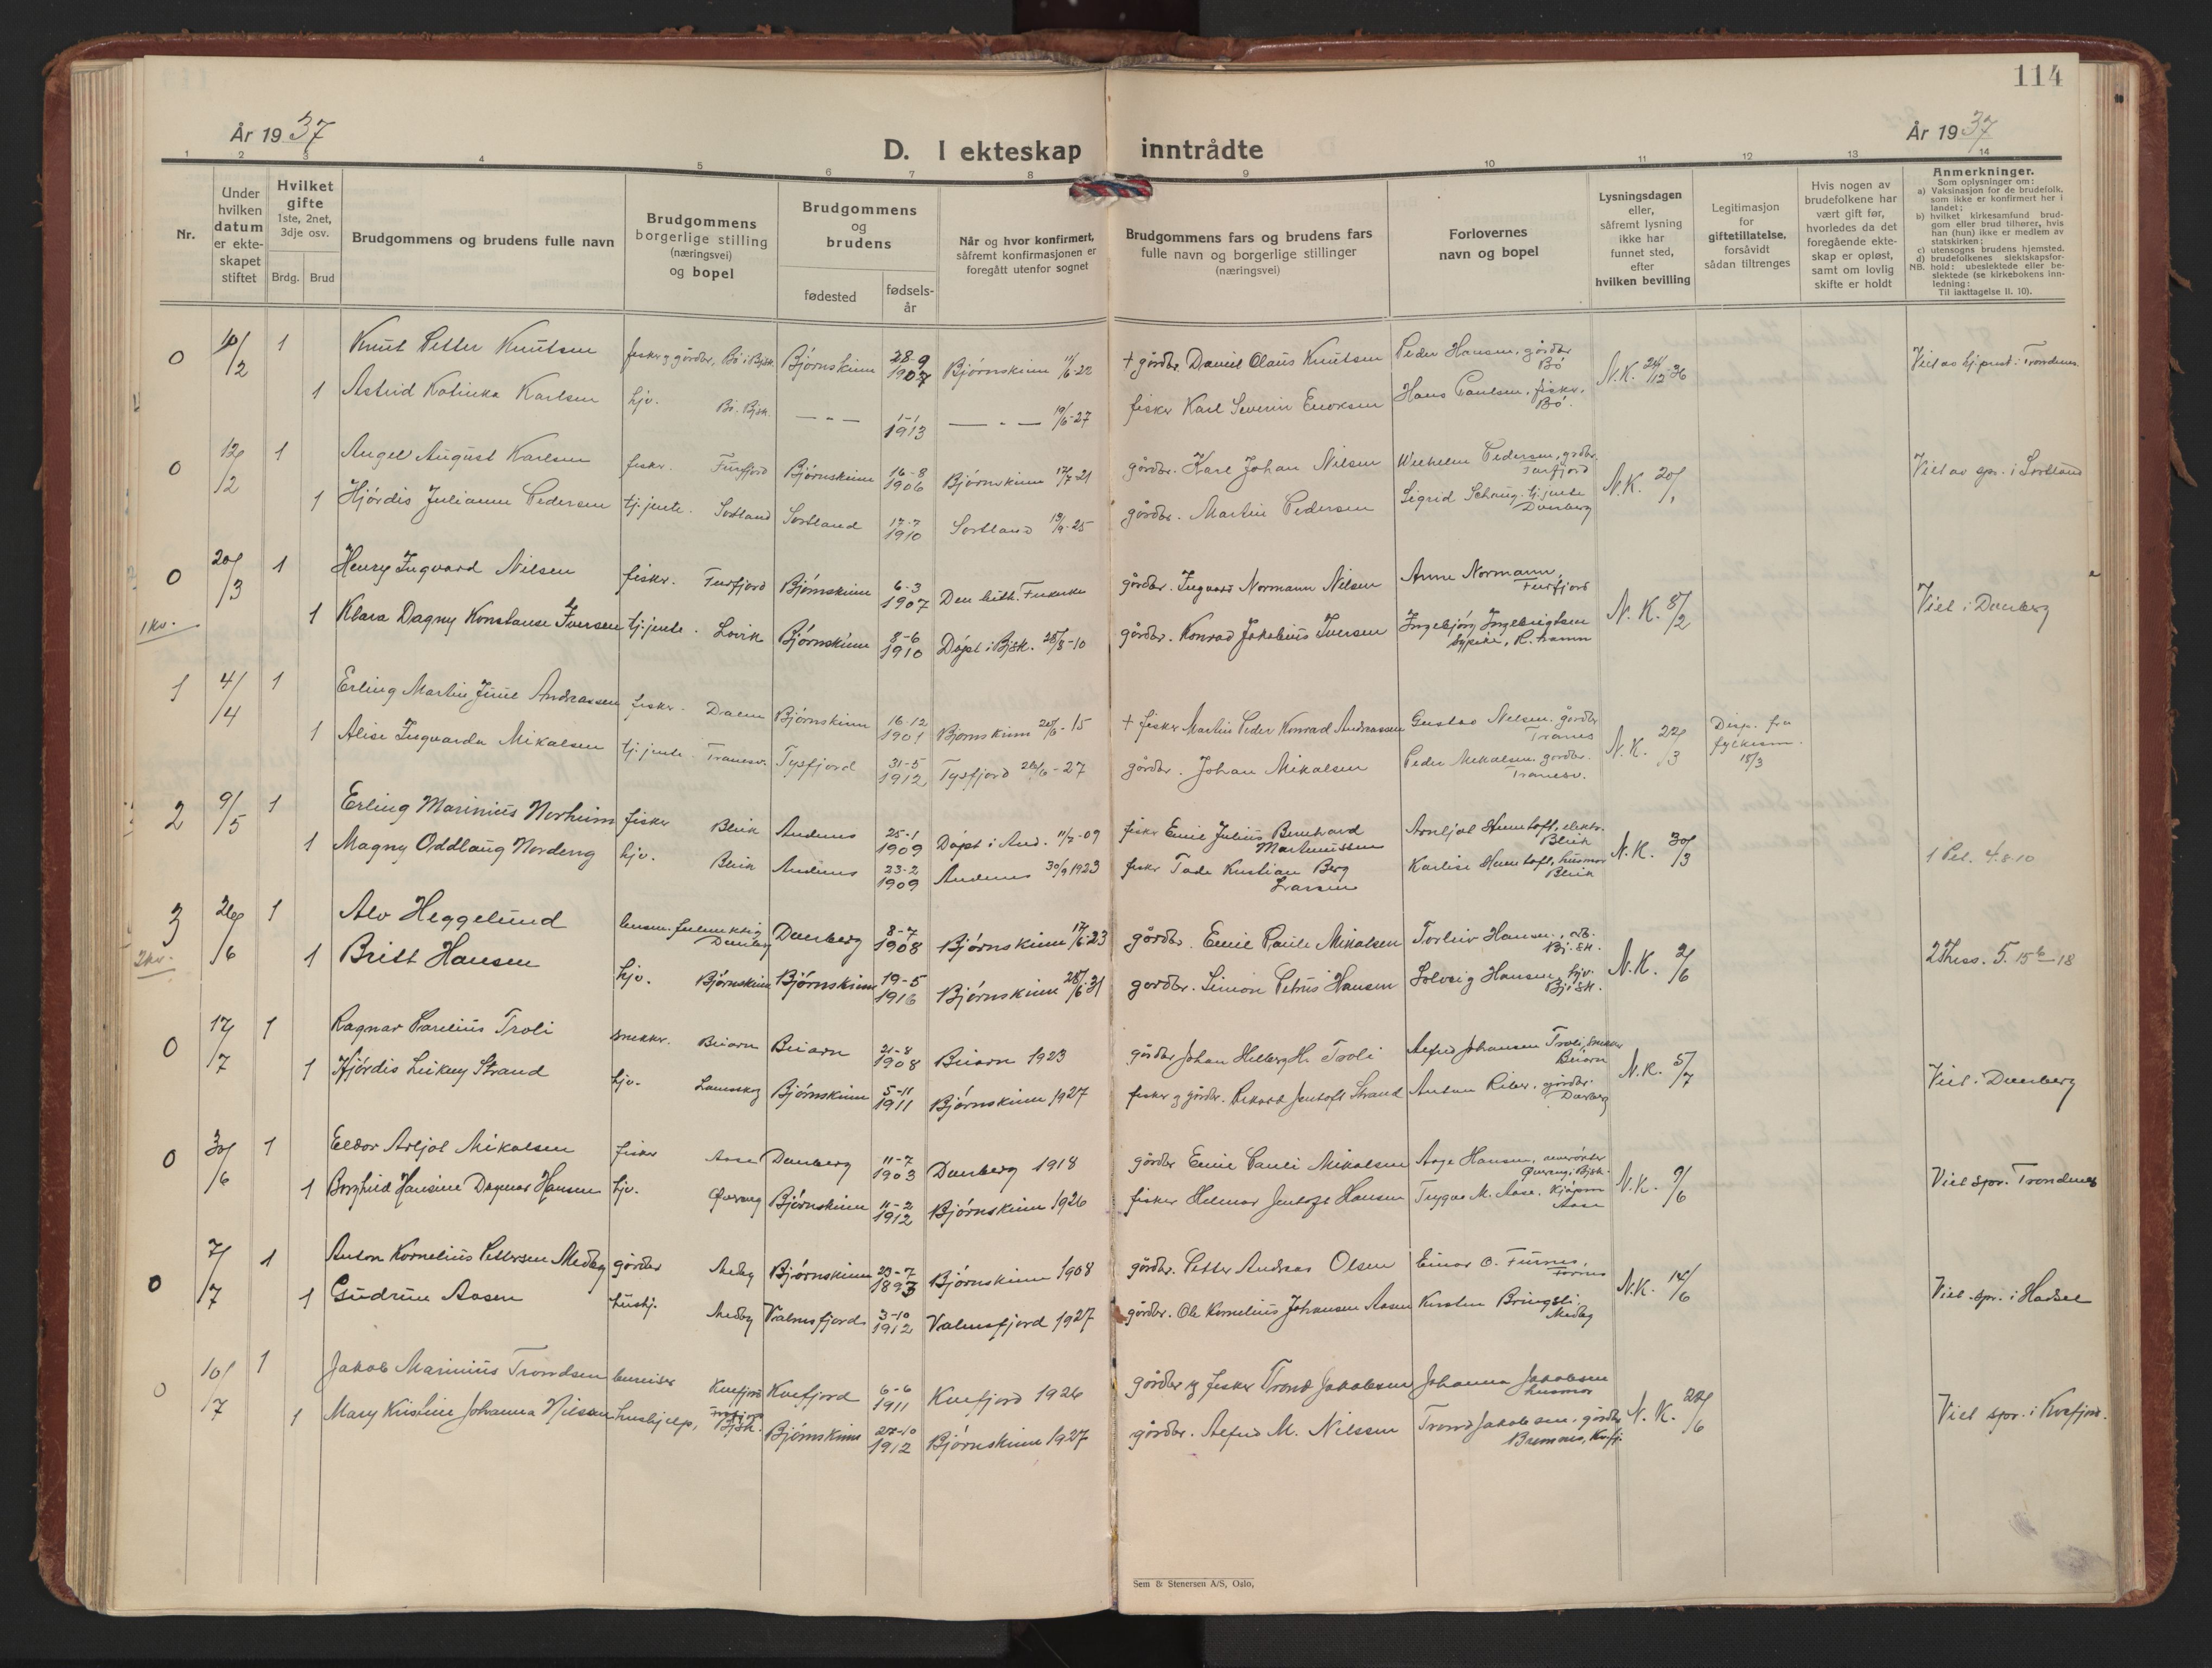 114
År 1937
D. I ekteskap inntrådte
År 1937
1 2 3 4 5 6 7 8 9 10 11 12 13 14
Nr.
Under hvilken datum er ekte-skapet stiftet
Hvilket gifte 1ste, 2net, 3dje osv.
Brdg. Brud
Brudgommens og brudens fulle navn
Brudgommens borgerlige stilling (næringsvei) og bopel
Brudgommens og brudens
fødested
fødsels-år
Når og hvor konfirmert, såfremt konfirmasjonen er foregått utenfor sognet
Brudgommens fars og brudens fars fulle navn og borgerlige stillinger (næringsvei)
Forlovernes navn og bopel
Lysningsdagen eller, såfremt lysning ikke har funnet sted, efter hvilken bevilling
Legitimasjon for giftetillatelse, forsåvidt sådan tiltrenges
Hvis nogen av brudefolkene har vært gift før, hvorledes da det foregående ekte-skap er opløst, samt om lovlig skifte er holdt
Anmerkninger.
Som oplysninger om:
a) Vaksinasjon for de brudefolk, som ikke er konfirmert her i landet;
b) hvilket kirkesamfund brud-gom eller brud tilhører, hvis han (hun) ikke er medlem av statskirken;
c) utensogns brudens hjemsted.
d) brudefolkenes slektskapsfor-hold: ubeslektede eller be-slektede (se kirkebokens inn-ledning:
NB.
Til iakttagelse II. 10).
0 10/2 1 Knut Petter Knutsen fisker og gårdbr., Bø i Bjsk. Bjørnskinn 28-9 1907 Bjørnskinn 11/6-22 † gårdbr. Daniel Olaus Knutsen Peder Hansen, gårdbr Bø N.K. 24/12-36 Viet av hj.prest i Trondenes
1 Astrid Katinka Karlsen hjv. Bø, Bjsk. — - — 1-1 1913 — - — 19/6-27 fisker Karl Severin Enoksen Hans Paulsen, fisker, Bø.
0 12/2 1 Angel August Karlsen fisker. Furfjord Bjørnskinn 16-8 1906 Bjørnskinn 17/7-21 gårdbr. Karl Johan Nilsen Wilhelm Pedersen, grdbr. Furfjord N.K. 20/1 Viet av spr. i Sortland
1 Hjørdis Julianne Pedersen tj.jente. Sortland Sortland 17-7 1910 Sortland 13/9-25 gårdbr. Martin Pedersen Sigrid Schaug, tj.jente Dverberg
0 20/3 1 Henry Ingvard Nilsen fisker. Furfjord Bjørnskinn 6-3 1907 Den luth. Frikirke gårdbr. Ingvard Normann Nilsen Anne Normann, Furfjord N.K. 8/2 Viet i Dverberg
1 kr. 1 Klara Dagny Konstanse Iversen tj.jente. Lovik Bjørnskinn 8-6 1910 Døpt i Bjsk. 28/8-10 gårdbr. Konrad Jakobius Iversen Ingebjørg Ingebrigtsen sypike, R.hamn
1 4/4 1 Erling Martin Juul Andreassen fisker. Bjørnskinn 16-12 1901 Bjørnskinn 20/6-15 † fisker Martin Peder Konrad Andreassen Gustav Nilsen, gårdbr Tranes N.K. 22/3 Disp. fra fylkesm. 18/3
1 Alise Ingvarda Mikalsen tj.jente. Tranesv. Tysfjord 31-5 1912 Tysfjord 26/6-27 gårdbr. Johan Mikalsen Peder Mikalsen, gårdbr. Tranesv.
2 9/5 1 Erling Marinius Norheim fisker Bleik Andenes 25-1 1909 Døpt i And. 11/7-09 fisker Emil Julius Bernhard Martinussen Arnljot Hemtoft, elektr. Bleik N.K. 30/3 1 Pet. 4.8-10
1 Magny Oddlaug Nordeng hjv. Bleik Andenes 23-2 1909 Andenes 30/9 1923 fisker Tode Kristian Berg Larsen Karlise Hemtoft, husmor Bleik
3 26/6 1 Alv Heggelund lensm.fullmektig Dverberg Dverberg 8-7 1908 Bjørnskinn 17/6-23 gårdbr. Emil Pauli Mikalsen Torleiv Hansen, Bj.sk. N.K. 2/6 2 Thess. 5. 15b-18
2 kr. 1 Britt Hansen hjv. Bjørnskinn Bjørnskinn 19-5 1916 Bjørnskinn 28/6-31 gårdbr. Simon Petrus Hansen Solveig Hansen, hjv. Bj.sk.
0 17/7 1 Ragnar Parelius Troli snekker. Beiarn Beiarn 21-8 1908 Beiarn 1923 gårdbr Johan Hilberg H. Troli Alfred Johansen Troli, snekker Beiarn N.K. 5/7 Viet i Dverberg
1 Hjørdis Leikny Strand hjv. Lanesskog Bjørnskinn 5-11 1911 Bjørnskinn 1927 fisker og gårdbr. Rikard Jentoft Strand Anton Riber, gårdbr. Dverberg
0 30/6 1 Eldor Arljot Mikalsen fisker Aase Dverberg 11-7 1903 Dverberg 1918 gårdbr Emil Pauli Mikalsen Aage Hansen, Øvereng i Bjsk. N.K. 9/6 Viet spr. Trondenes
1 Borghild Hansine Dagmar Hansen hjv. Øvereng Bjørnskinn 11-2 1912 Bjørnskinn 1926 fisker Helmer Jentoft Hansen Trygve M. Aase, kjøpm Aase
0 7/7 1 Anton Kornelius Pettersen Medby gårdbr Medby Bjørnskinn 23-7 1893 Bjørnskinn 1908 gårdbr. Petter Andreas Olsen Einar O. Furnes, Fornes N.K. 14/6 Viet spr. i Hadsel
1 Gudrun Aasen hushj. Medby Valnesfjord 3-10 1912 Valnesfjord 1927 gårdbr. Ole Kornelius Johansen Aasen Kirsten Bringsli, Medby
0 10/7 1 Jakob Marinius Trondsen bureiser Kvefjord Kvefjord 6-6 1911 Kvefjord 1926 gårdbr og fisker Trond Jakobsen Johanna Jakobsen husmor N.K. 22/6 Viet spr. i Kvefjord.
1 Mary Kristine Johanna Nilsen hushjelp, Bjsk. Bjørnskinn 27-10 1912 Bjørnskinn 1927 gårdbr. Alfred M. Nilsen Trond Jakobsen, gårdbr Bremnes, Kvefj.
Sem & Stenersen A/S, Oslo,